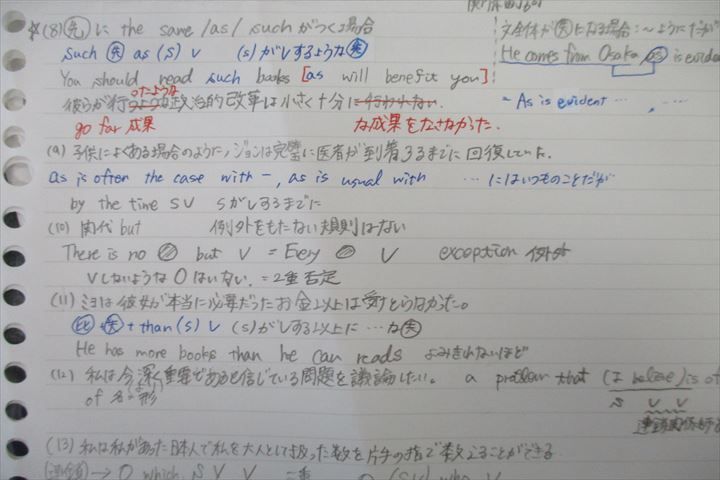 (8) 先 に the same /as/ such がつく場合
such 先 as (S) V (S)がVするような先
You should read such books [as will benefit you]
彼らが行ったような政治的改革は小さく十分に行われない
go far 成果 な成果をなさなかった.
文全体が先になる場合:〜ように だが
He comes from Osaka, as is evident
~ As is evident …, …
(9) 子供によくある場合のように, ジョンは完璧に医者が到着するまでに回復していた.
as is often the case with ー, as is usual with … にはいつものことだが
by the time SV SがVするまでに
(10) 関代 but 例外をもたない規則はない
There is no but V = Every V exception 例外
Vしないような○はいない. = 2重否定
(11) ミヨは彼女が本当に必要だったお金以上は受けとらなかった。
比 先 + than (S) V (S)がVする以上に…な先
He has more books than he can reads よみきれないほど
(12) 私は今深く重要であると信じている問題を議論したい。 a problem that (I believe) is of
of 名=形 S V V
連鎖関係
(13) 私は私があった日本人で私を大人として扱った数を片手の指で数えることができる.
(連鎖) → O which S V V